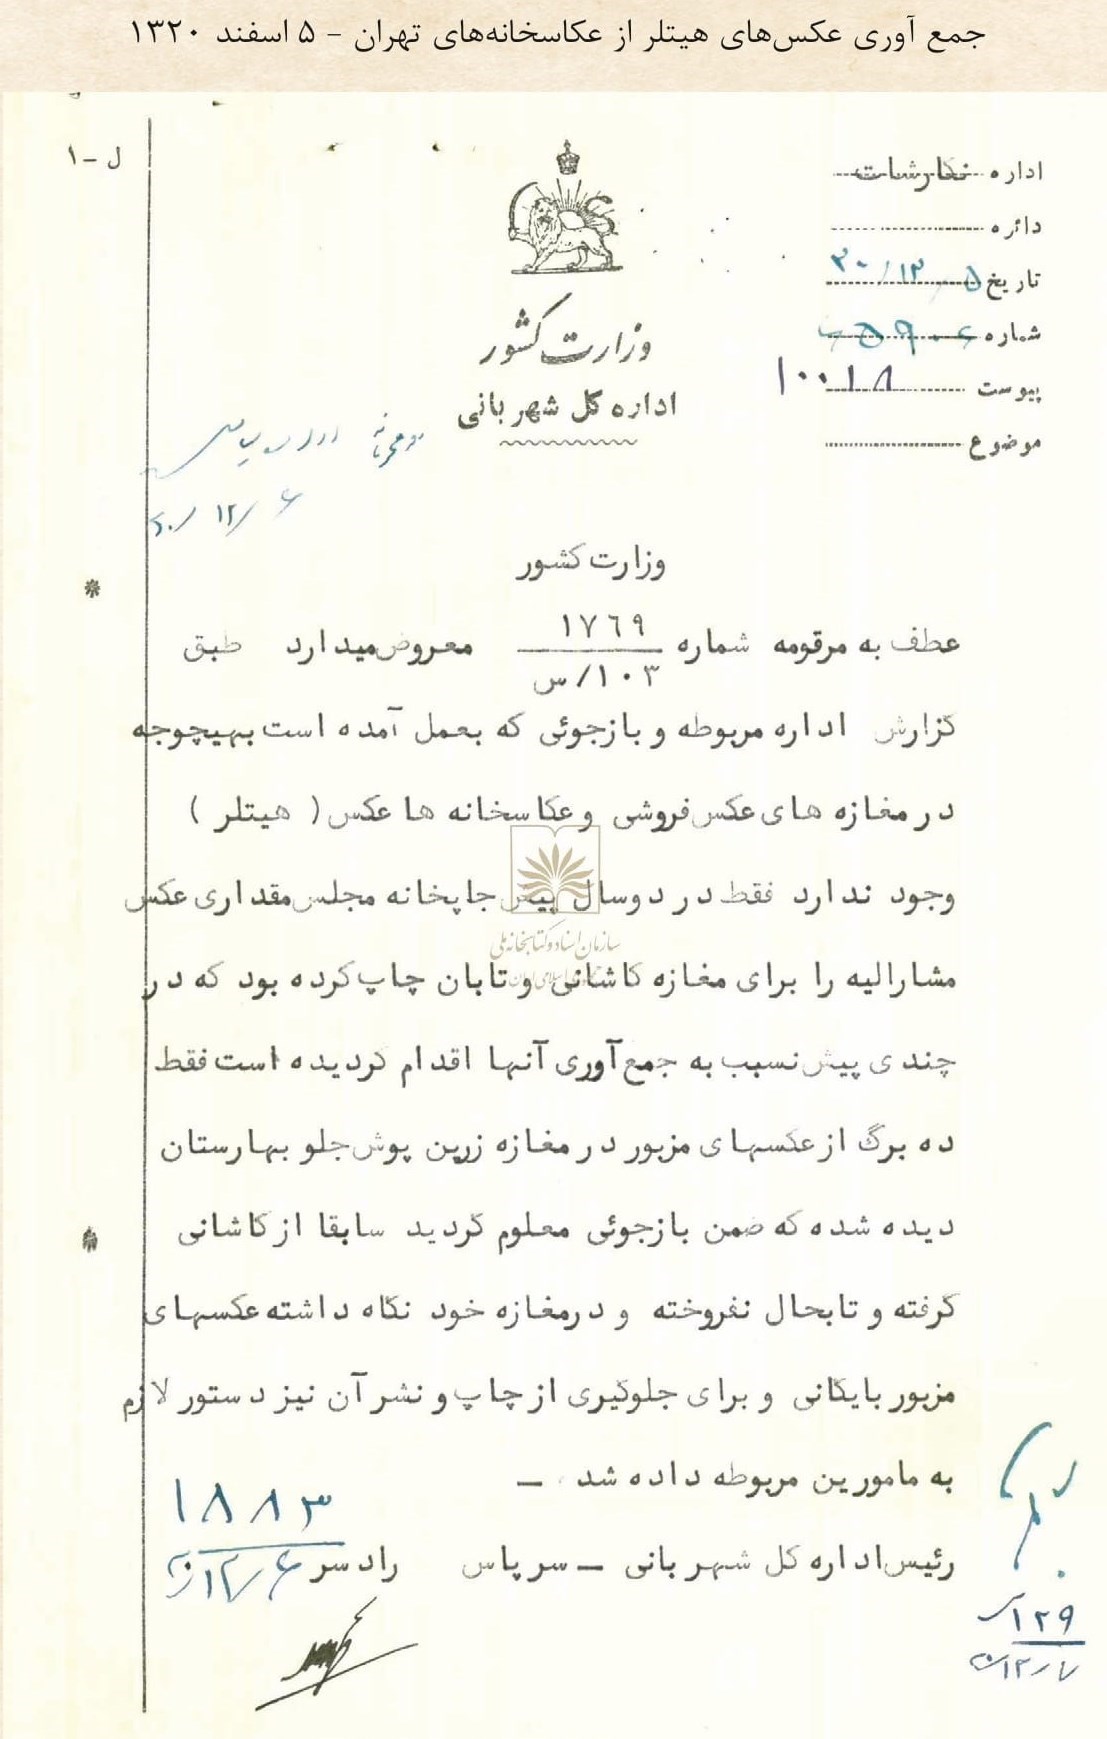 جمع آوری عکس‌های هیتلر از عکاسخانه‌های تهران - ۵ اسفند ۱۳۲۰
ل -۱
اداره نگارشات
دائره
تاریخ ۵/۱۲/۲۰
شماره
پیوست ۱۰۰۱۸
موضوع
وزارت کشور
اداره کل شهربانی
محرمانه
۶/۱۲/۲۰
وزارت کشور
عطف به مرقومه شماره ۱۷۶۹ معروض میدارد طبق
۱۰۳/س
گزارش اداره مربوطه و بازجوئی که بعمل آمده است بهیچوجه
در مغازه های عکس فروشی و عکاسخانه ها عکس ( هیتلر )
وجود ندارد فقط در دوسال پیش چاپخانه مجلس مقداری عکس
سازمان اسناد و کتابخانه ملی
جمهوری اسلامی ایران
مشارالیه را برای مغازه کاشانی و تابان چاپ کرده بود که در
چندی پیش نسبب به جمع آوری آنها اقدام گردیده است فقط
ده برگ از عکسهای مزبور در مغازه زرین پوش جلو بهارستان
دیده شده که ضمن بازجوئی معلوم گردید سابقا از کاشانی
گرفته و تابحال نفروخته و درمغازه خود نگاه داشته عکسهای
مزبور بایگانی و برای جلوگیری از چاپ و نشر آن نیز دستور لازم
به مامورین مربوطه داده شد ـ
رئیس اداره کل شهربانی ـ سرپاس رادسر
۱۸۸۳
۶/۱۲/۲۰
۱۲۹
۷/۱۲/۲۰